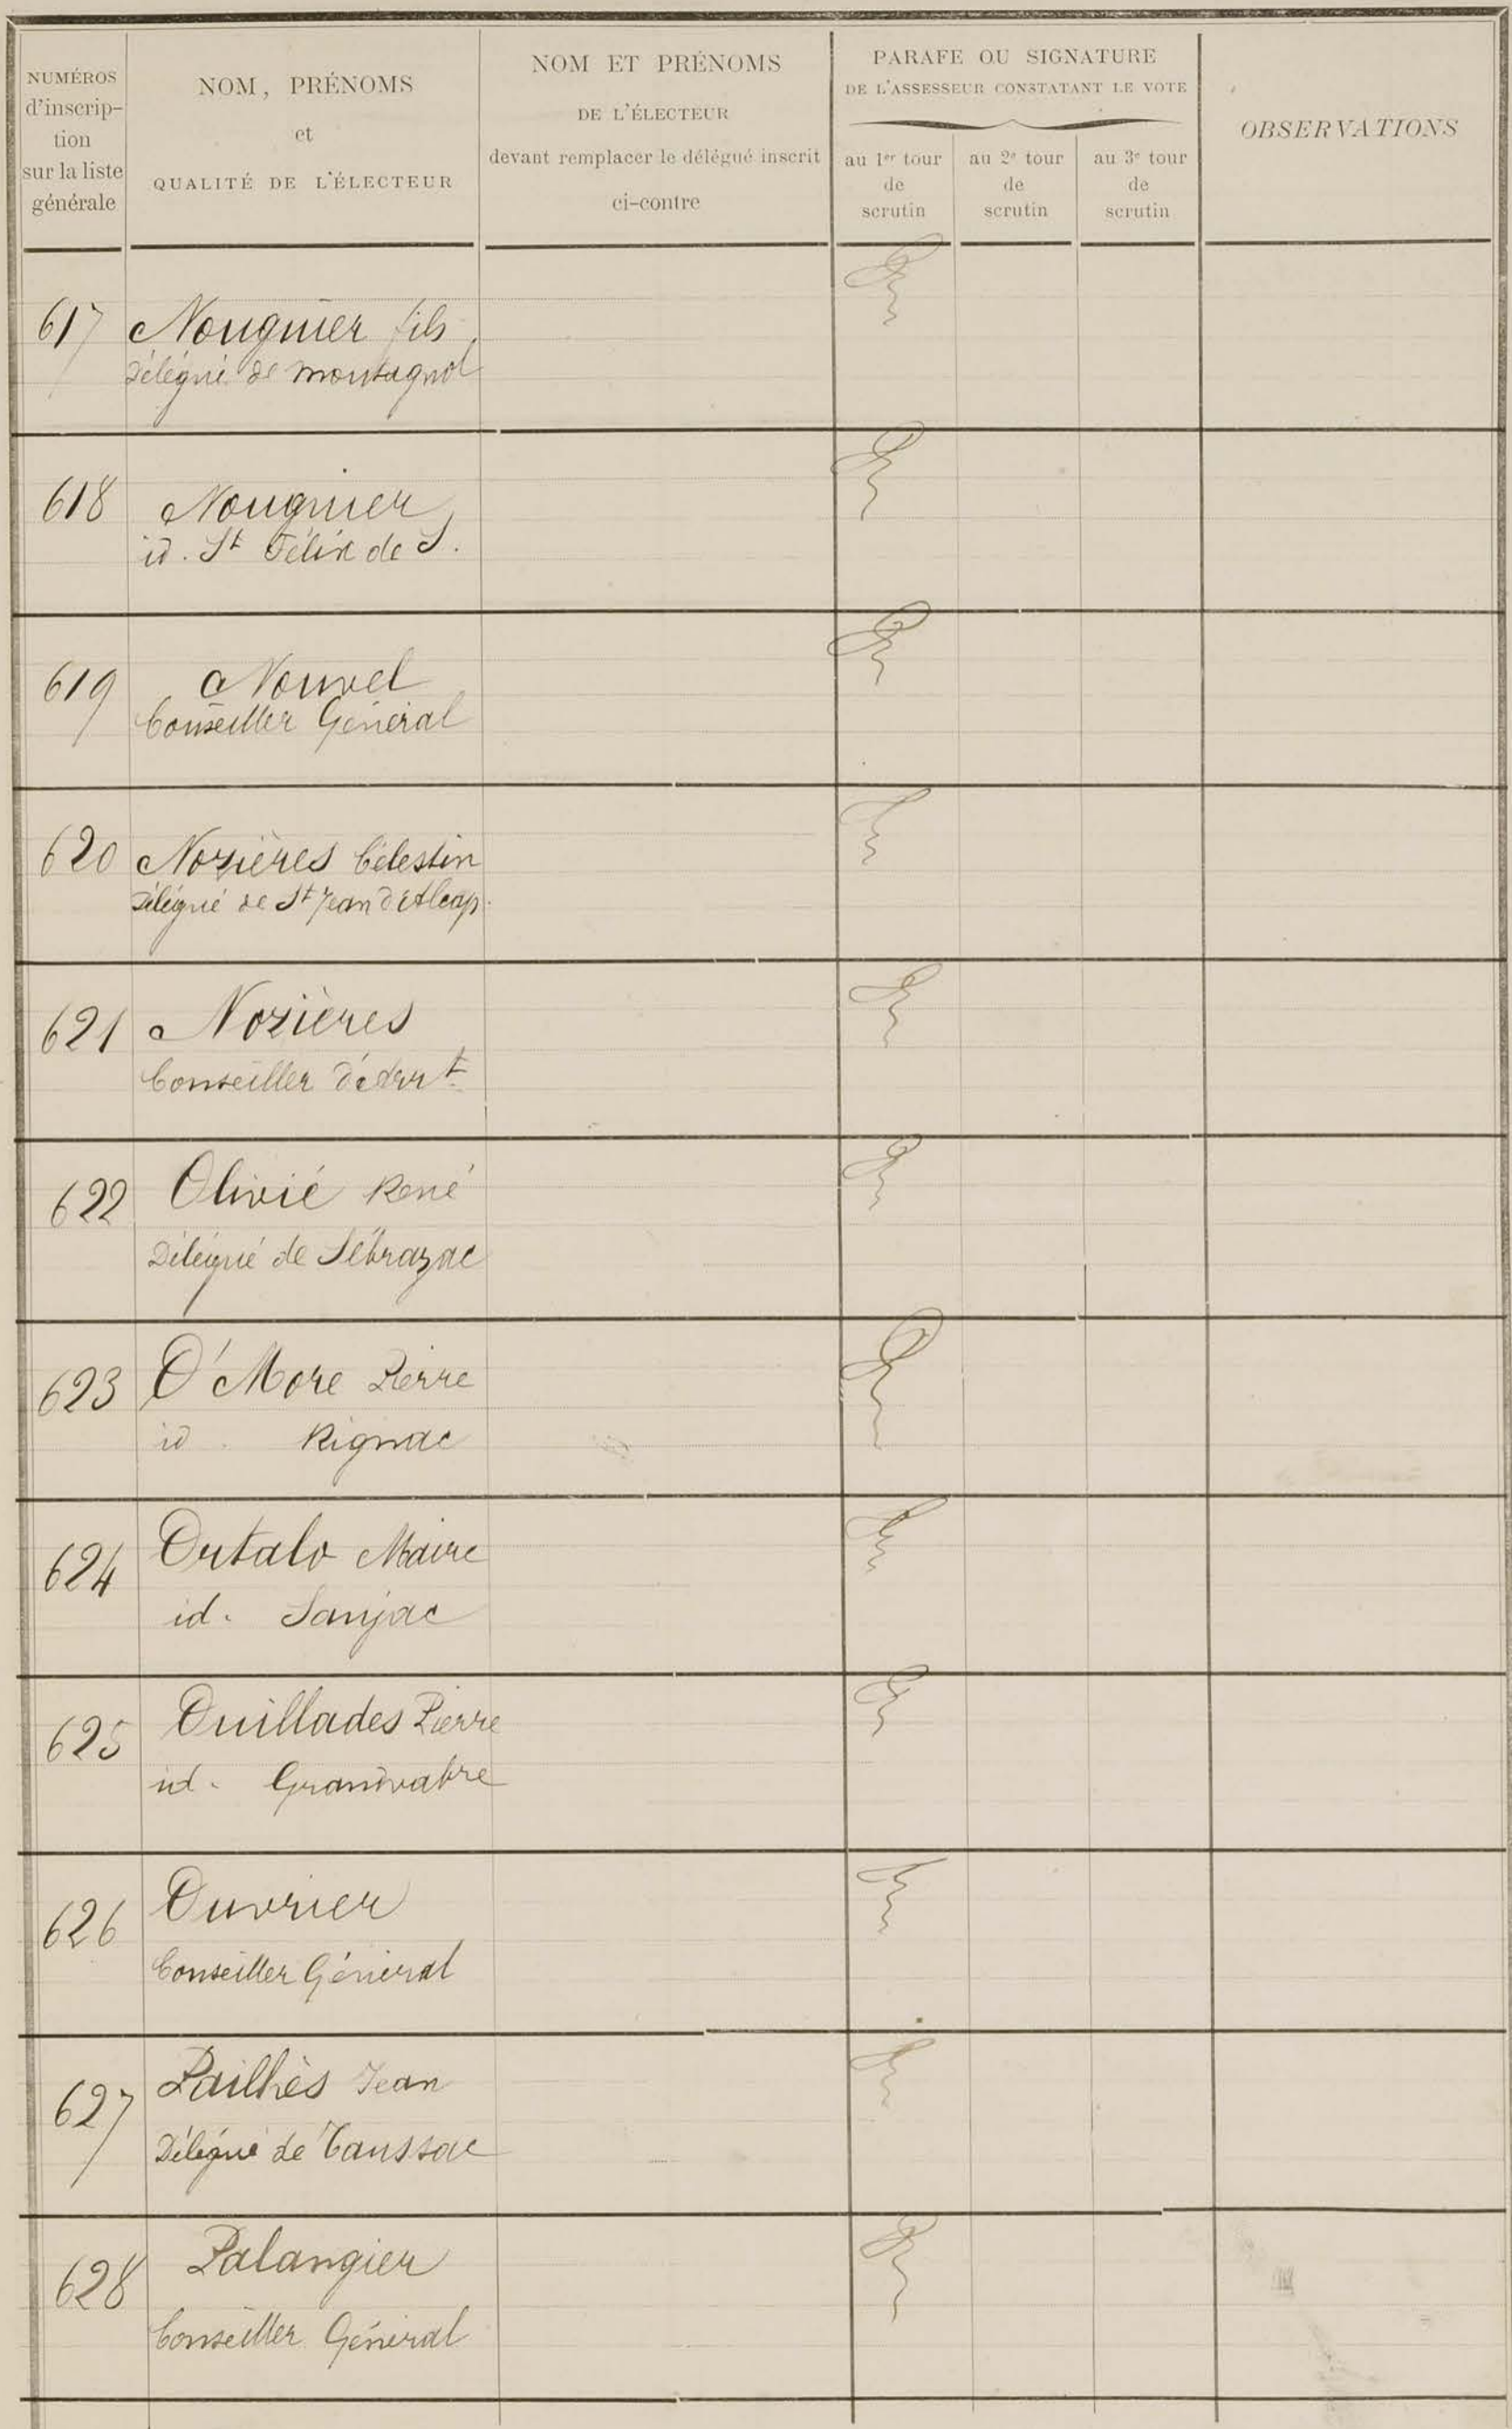 NUMÉROS
d'inscrip-
tion
sur la liste
générale
NOM, PRÉNOMS
et
QUALITÉ DE L'ÉLECTEUR
NOM ET PRÉNOMS
DE L'ÉLECTEUR
devant remplacer le délégué inscrit
ci-contre
PARAFE OU SIGNATURE
DE L'ASSESSEUR CONSTATANT LE VOTE
au 1er tour
de
scrutin
au 2e tour
de
scrutin
au 3e tour
de
scrutin
OBSERVATIONS
617 Nouguier fils
Délégué de Montagnol
618 Nouguier
id. St Félix de S.
619 Nouvel
Conseiller Général
620 Nozières Célestin
Délégué de St Jean d'Alcap.
621 Nozières
Conseiller d'Arrt
622 Olivié René
Délégué de Sébrazac
623 O'More Pierre
id. Rignac
624 Ortalo Maire
id. Sanjac
625 Ouillades Pierre
id. Grandvabre
626 Ouvrier
Conseiller Général
627 Pailhès Jean
Délégué de Taussac
628 Palangier
Conseiller Général